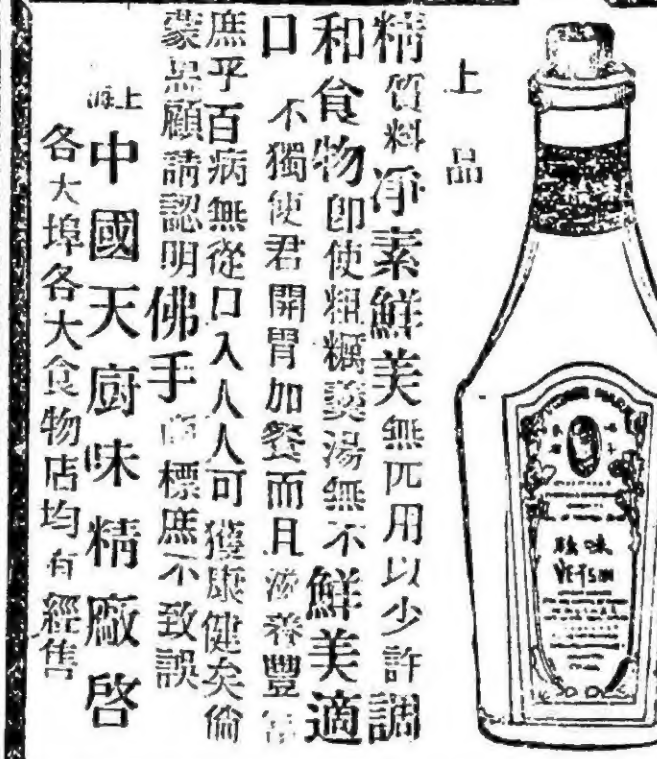 上品
精質料淨素鮮美無匹用以少許調
和食物即使粗糲羹湯無不鮮美適
口不獨使君開胃加餐而且滋養豐富
庶乎百病無從口入人人可獲康健矣倘
蒙惠顧請認明佛手商標庶不致誤
上海中國天廚味精廠啓
各大埠各大食物店均有經售
味精
VE-TSIN